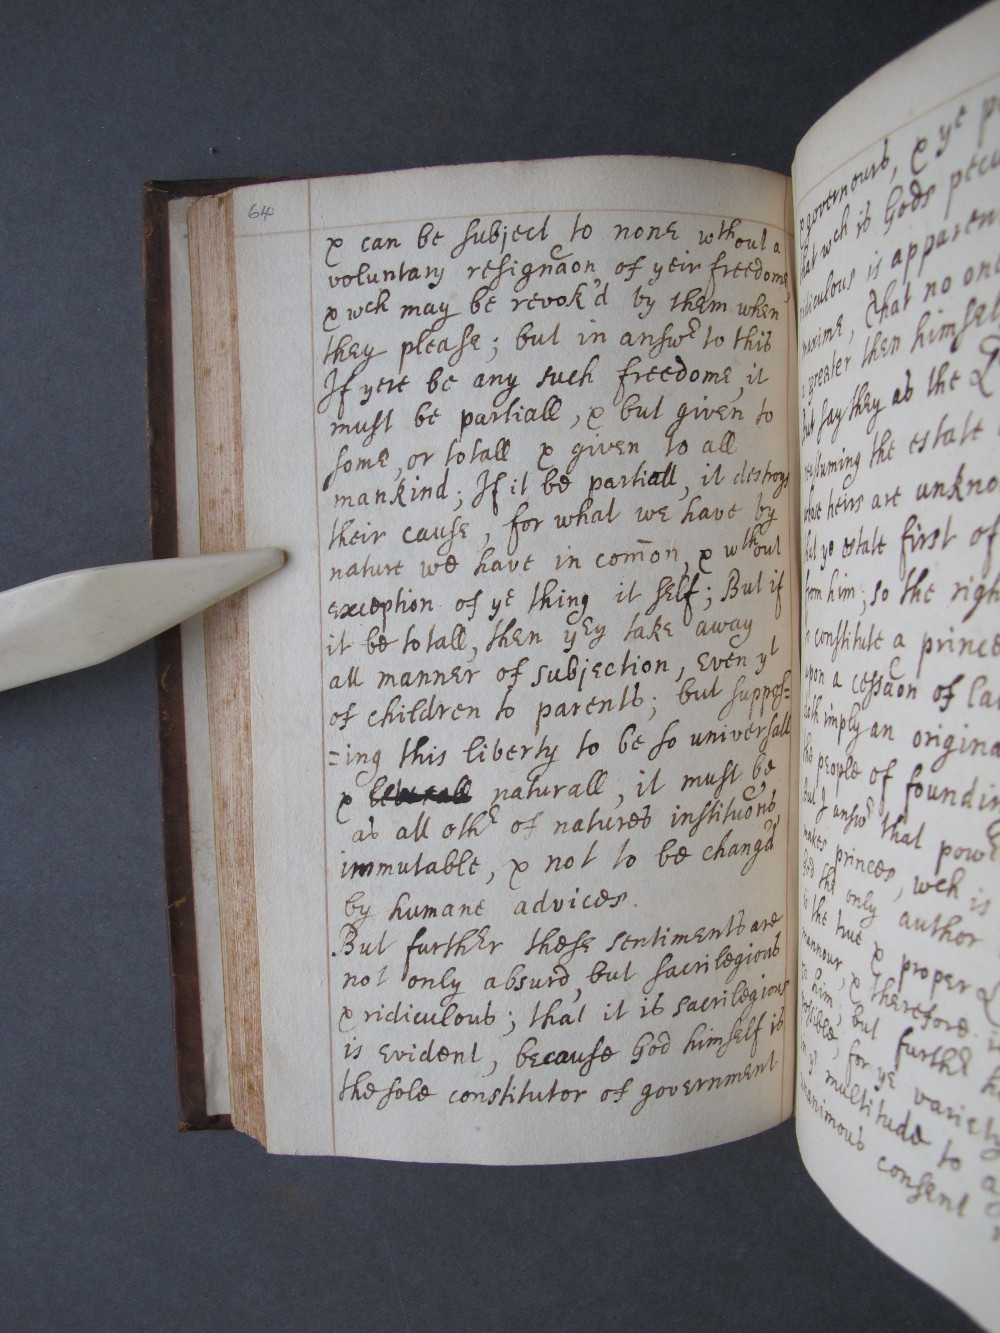 64
& can be subject to none wthout a
voluntary resignãon of yeir freedome,
& wch may be revok'd by them when
they please; but in answr to this
If yere be any such freedome, it
must be partiall, & but given to
some, or totall & given to all
mankind; If it be partiall, it destroys
their cause, for what we have by
nature we have in com̄on, & wthout
exception of ye thing it self; But if
it be totall, then yey take away
all manner of subjection, even yt
of children to parents; but suppos=
=ing this liberty to be so universall
& naturall, it must be
as all othr of natures instituõns
immutable, & not to be chang'd
by humane advices.
But further these sentiments are
not only absurd, but sacrilegious
& ridiculous; that it is sacrilegious
is evident, because God himself is
the sole constitutor of government
governours, & ye
wch is Gods
is apparen
that no one
greater then himsel
say they as the
the estate
heirs are unkno
ye estate first of
from him; so the righ
constitute a prince
upon a cessãon of
imply an origina
people of foundin
I answr that powe
princes, wch is
the only author
the true & proper
mannour, & therefore
him; but furthr
for ye variety
multitude to a
unanimous consent